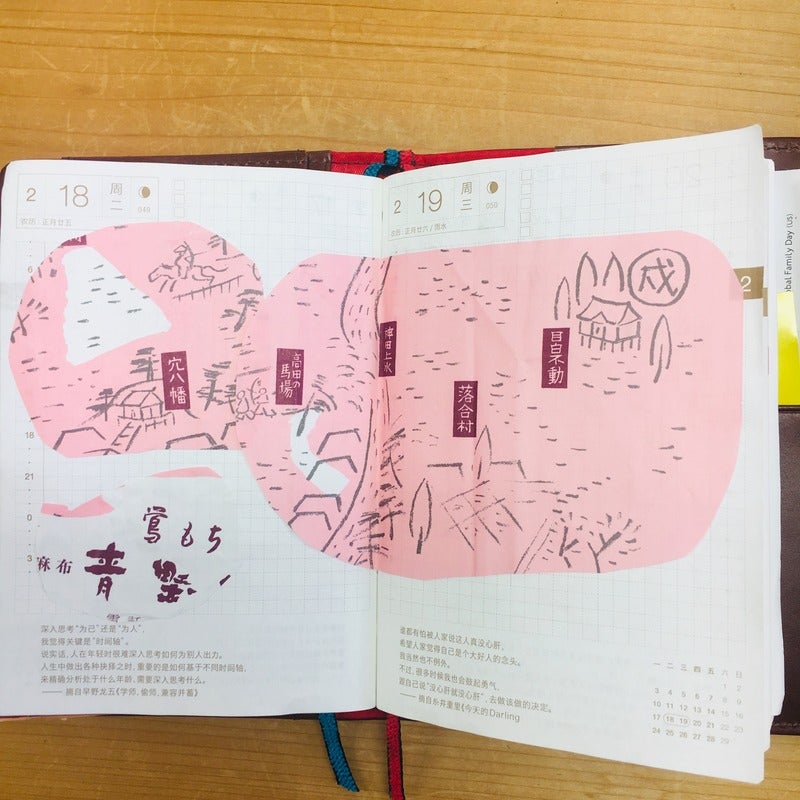 2 18 周二
049
农历:正月廿五
穴八幡
高田の馬場
18
21
0
3
鶯もち
麻布 青
深入思考“为己”还是“为人”,
我觉得关键是“时间轴”。
说实话,人在年轻时很难深入思考如何为别人出力。
人生中做出各种抉择之时,重要的是如何基于不同时间轴,
来精确分析处于什么年龄、需要深入思考什么。
——摘自早野龙五《学师、偷师、兼容并蓄》
2 19 周三
050
农历:正月廿六 / 雨水
神田上水
落合村
目白不動
戌
2
谁都有怕被人家说这人真没心肝,
希望人家觉得自己是个大好人的念头。
我当然也不例外。
不过,很多时候我也会鼓起勇气,
跟自己说“没心肝就没心肝”,去做该做的决定。
——摘自糸井重里《今天的Darling
一 二 三 四 五 六 日
1 2
3 4 5 6 7 8 9
10 11 12 13 14 15 16
17 18 19 20 21 22 23
24 25 26 27 28 29
obal Family Day (US)